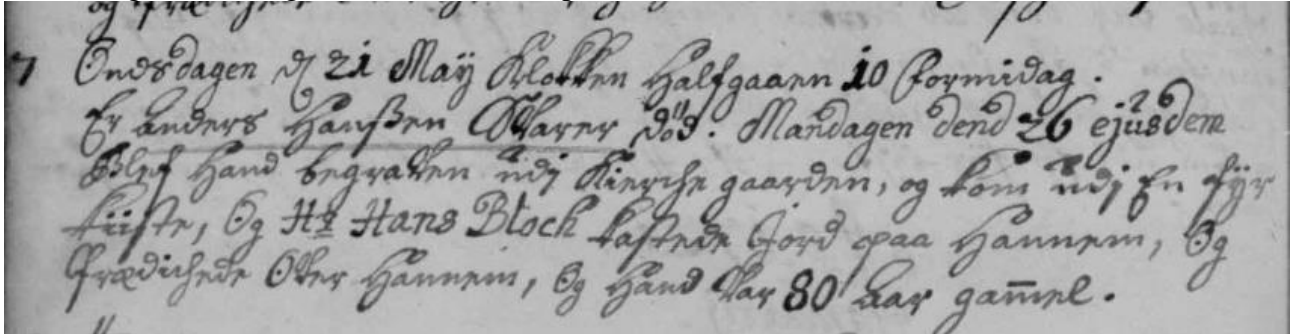 7 Onds dagen d 21 Maÿ Klokken Halfgaaen 10 Formidag.
Er Anders Hanßen død. Mandagen dend 26 ejusdem
Blef Hand begraven udj Kierche gaarden, og kom udj En fÿr
kiiste, Og Hr Hans Block kastede Jord paa Hannem, Og
Prædichede Over Hannem, Og Hand Var 80 Aar gam̅el.